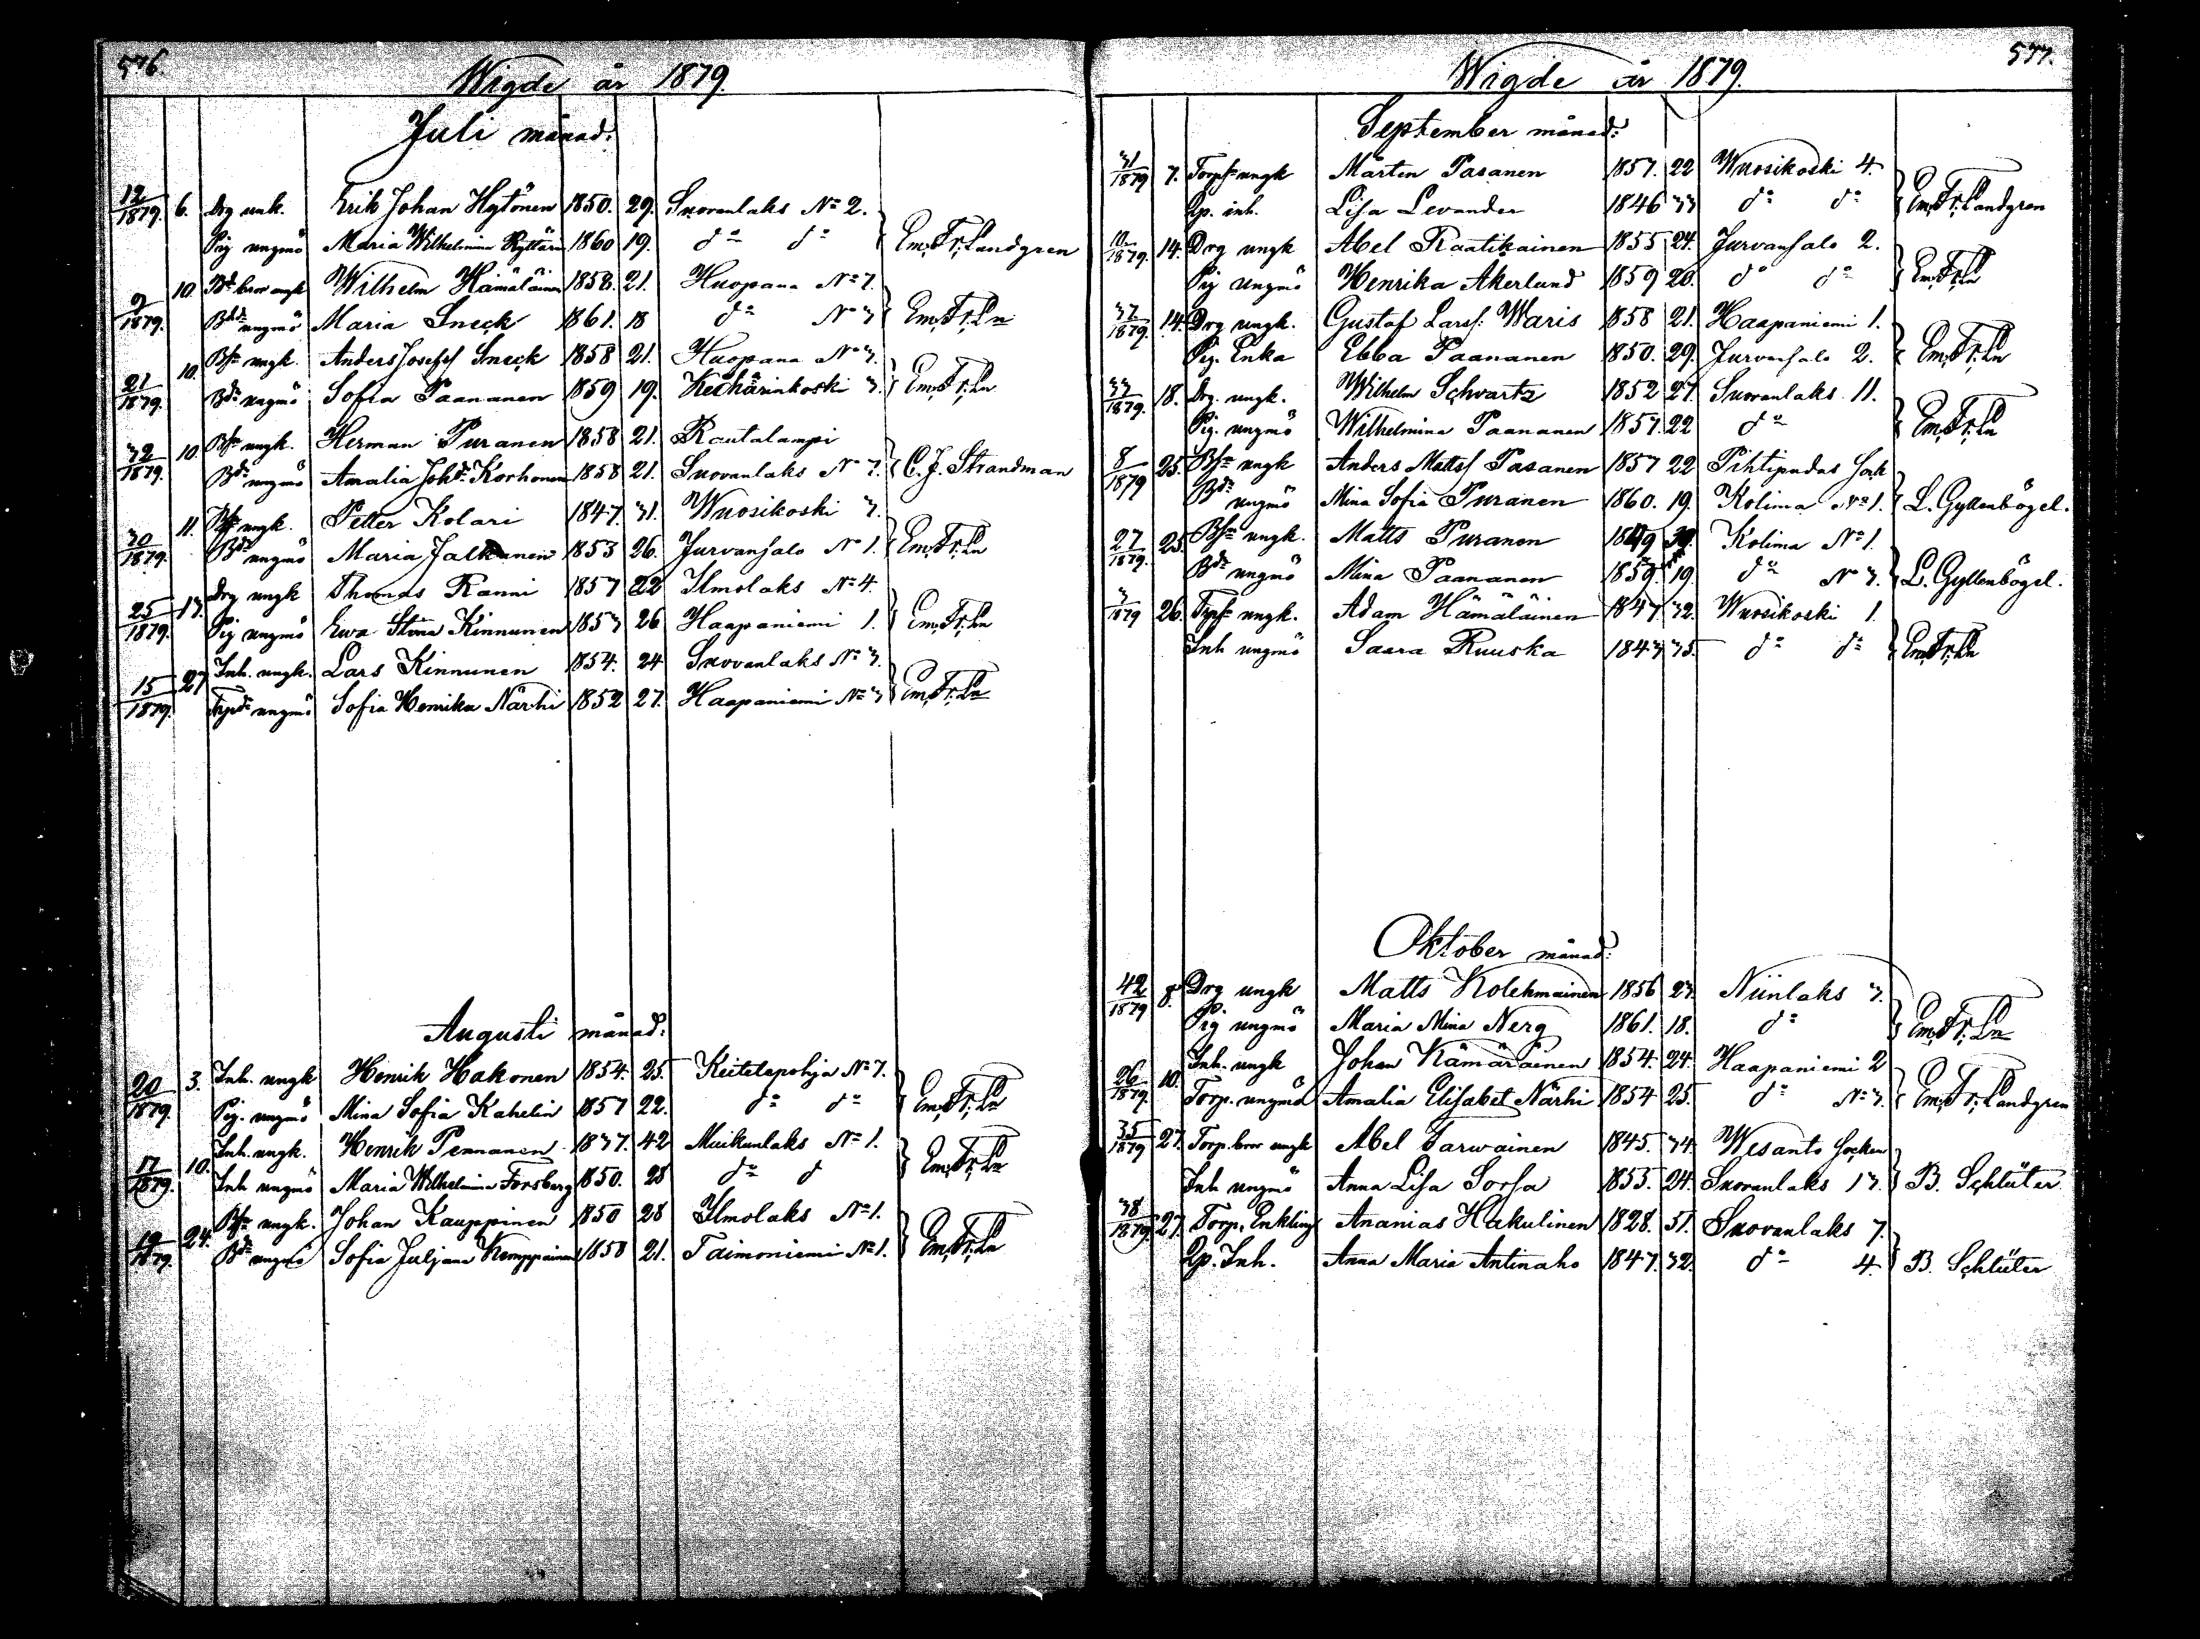 576.
Wigde år 1879.
Juli månad:
12/1879. 6. Drg unk. Erik Johan Hytönen 1850. 29. Suovanlaks No 2.
Pig ungmö Maria Wilhelmina 1860 19. do do Em. Fr. Landgren
9/1879. 10. Bd bror ungk Wilhelm Hämäläinen 1858. 21. Huopana No 7.
Bdr ungmö Maria Sneck 1861. 18 do No 3 Em. Fr. Ln
21/1879. 10. Bsn ungk. Anders Josefss Sneck 1858 21. Huopana No 3.
Bdr ungmö Sofia Paananen 1859 19. Keihärinkoski 3. Em. Fr. Ln
32/1879. 10. Bsn ungk. Herman Puranen 1858 21. Rautalampi
Bdr ungmö Amalia Johdr Korhonen 1858 21. Suovanlaks No 7. C. J. Strandman
30/1879. 11. Bsn ungk. Petter Kolari 1847. 31. Wuosikoski 3.
Bdr ungmö Maria Jalkanen 1853 26. Jurvansalo No 1. Em. Fr. Ln
25/1879. 13. Drg ungk Thomas Ranni 1857 22 Ilmolaks No 4.
Pig ungmö Ewa Stina Kinnunen 1853 26 Haapaniemi 1. Em. Fr. Ln
15/1879. 27 Inh. ungk. Lars Kinnunen 1854. 24 Suovanlaks No 3.
Trpdr ungmö Sofia Henrika Närhi 1852 27. Haapaniemi No 3 Em. Fr. Ln
Augusti månad:
20/1879. 3. Inh. ungk Henrik Hakonen 1854. 25. Keitelepohja No 7.
Pig. ungmö Mina Sofia Kahelin 1857 22. do do Em. Fr. Ln
17/1879. 10. Inh. ungk. Henrik Pennanen 1837. 42 Muikunlaks No 1.
Inh ungmö Maria Wilhelmina Forsberg 1850. 28 do d Em. Fr. Ln
19/1879. 24. Bsn ungk. Johan Kauppinen 1850 28 Ilmolaks No 1.
Bdr ungmö Sofia Juljana Kemppainen 1858 21. Taimoniemi No 1. Em. Fr. Ln
577.
Wigde år 1879.
September månad:
31/1879 7. Torpsn ungk Mårten Pasanen 1857. 22 Wuosikoski 4.
Qp. inh. Lisa Levander 1846 33 do do Em. Fr. Landgren
10/1879. 14. Drg ungk Abel Raatikainen 1855 24. Jurvansalo 2.
Pig ungmö Henrika Akerlund 1859 20. do do Em. Fr. Ln
37/1879. 14. Drg ungk. Gustaf Larss: Waris 1858 21. Haapaniemi 1.
Pig. Enka Ebba Paananen 1850. 29. Jurvansalo 2. Em. Fr. Ln
33/1879. 18. Drg. ungk. Wilhelm Schvartz 1852 27. Suovanlaks 11.
Pig. ungmö Wilhelmina Paananen 1857. 22 do Em. Fr. Ln
8/1879 25. Bsn ungk Anders Mattss Pasanen 1857 22 Pihtipudas sock
Bdr ungmö Mina Sofia Puranen 1860. 19. Kolima No 1. L. Gyllenbögel.
27/1879. 25. Bsn ungk. Matts Puranen 1849 30. Kolima No 1.
Bdr ungmö Mina Paananen 1859. 19. do No 3. L. Gyllenbögel.
3/1879 26. Trpsn ungk. Adam Hämäläinen 1847. 32. Wuosikoski 1.
Inh ungmö Saara Ruuska 1843 35. do do Em. Fr. Ln
Oktober månad:
42/1879 8. Drg ungk Matts Kolehmainen 1856 23. Niinlaks 3.
Pig ungmö Maria Mina Nerg 1861. 18. do Em. Fr. Ln
26/1879 10. Inh. ungk Johan Kämäräinen 1854. 24. Haapaniemi 2
Torp. ungmö Amalia Elisabet Närhi 1854 25. do No 3. Em. Fr. Landgren
35/1879 27. Torp. bror ungk Abel Tarwainen 1845. 34. Wesanto socken
Inh ungmö Anna Lisa Sorsa 1855. 24. Suovanlaks 13. B. Schlüter
38/1879. 27. Torp. Enkling Ananias Hakulinen 1828. 51. Suovanlaks 7.
Qp. Inh. Anna Maria Antinaho 1847. 32. do 4. B. Schlüter